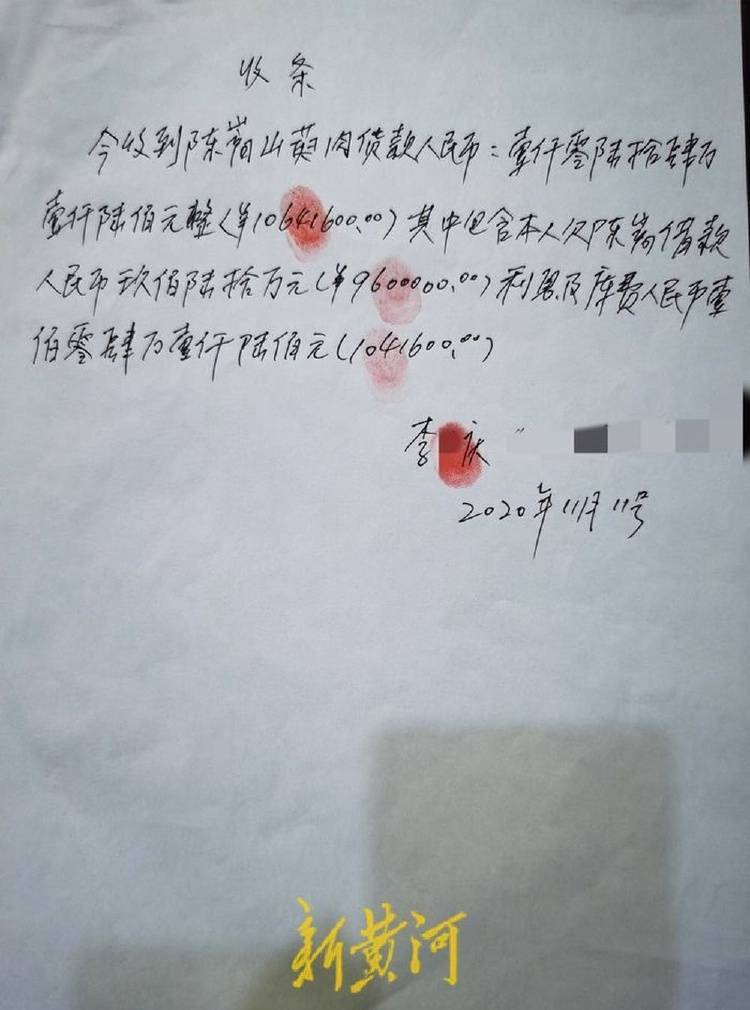 收条
今收到陈菊山萸肉货款人民币:壹仟零陆拾肆万
壹仟陆佰元整(¥10641600.00)其中包含本人欠陈菊借款
人民币玖佰陆拾万元(¥9600000.00)利息及库费人民币壹
佰零肆万壹仟陆佰元(1041600.00)
李 庆
2020年11月11号
新黄河